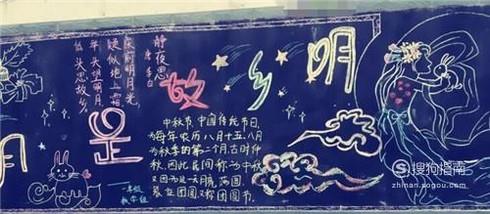 静夜思
唐 李白
床前明月光
疑似地上霜
举头望明月
低头思故乡
是故乡明
中秋节,中国传统节日
为每年农历八月十五,八月
为秋季的第二个月古时仲
秋,因此民间称为中秋
又因为这一天月亮满圆
象征团圆又称团圆节
搜狗指南
zhinan.sogou.com